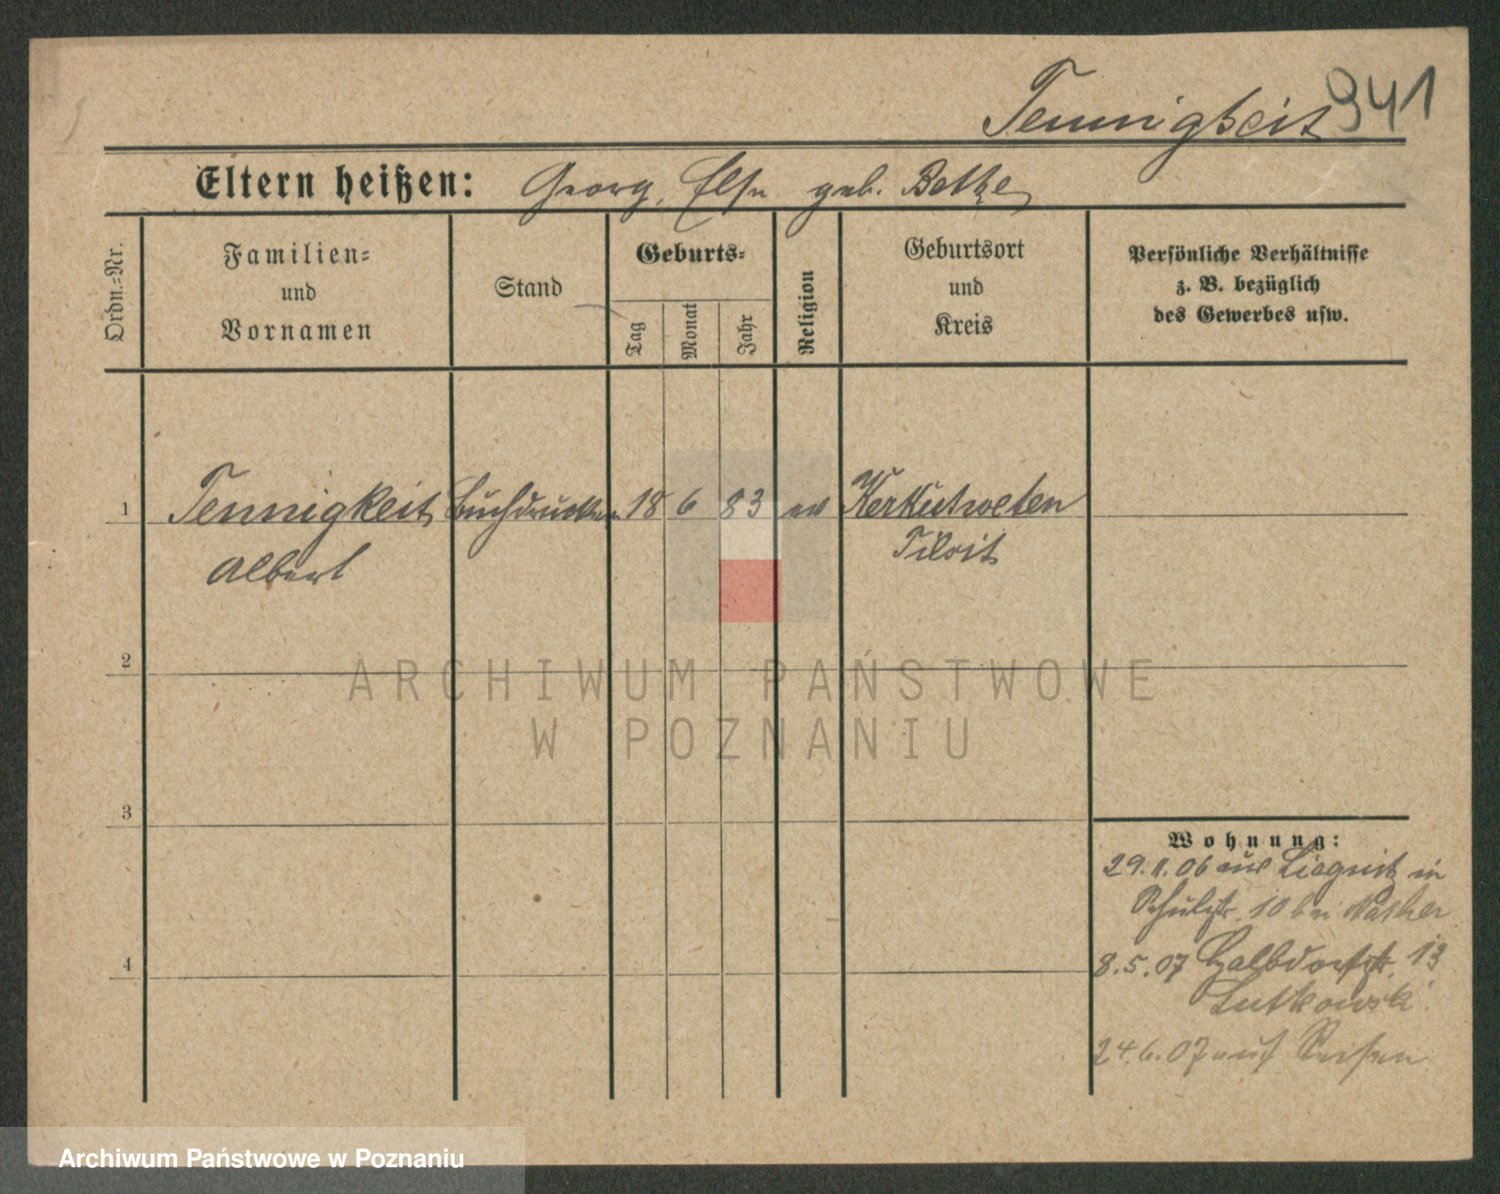 Tennigkeit 941
Eltern heißen: Georg, Else geb. Bethke
Ordn.=Nr.
Familien=
und
Vornamen
Stand
Geburts=
Tag
Monat
Jahr
Religion
Geburtsort
und
Kreis
Persönliche Verhältnisse
z. B. bezüglich
des Gewerbes usw.
1 Tennigkeit Buchdrucker 18 6 83 ev Kerkutweten
Albert Tilsit
2
ARCHIWUM PAŃSTWOWE
W POZNANIU
3
Wohnung:
29.11.06 aus Liegnitz in
Schulstr. 10 bei
4
8.5.07 Halbdorfstr. 13
Lutkowski.
24.6.07 auf Reisen
Archiwum Państwowe w Poznaniu